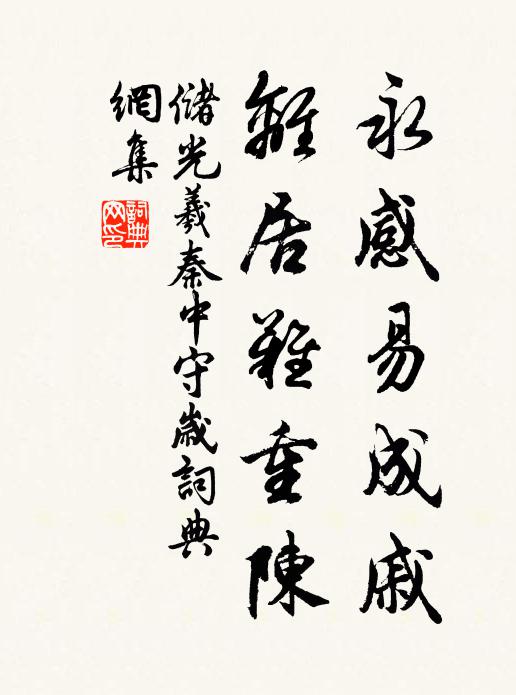 永感易成戚
離居難重陳
儲光羲秦中守歲詞典
網集
詞典
网印